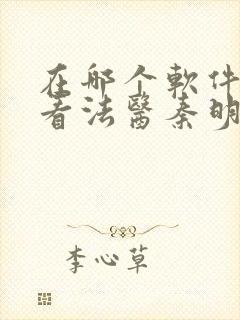 在哪个軟件
看法醫秦明
李心草